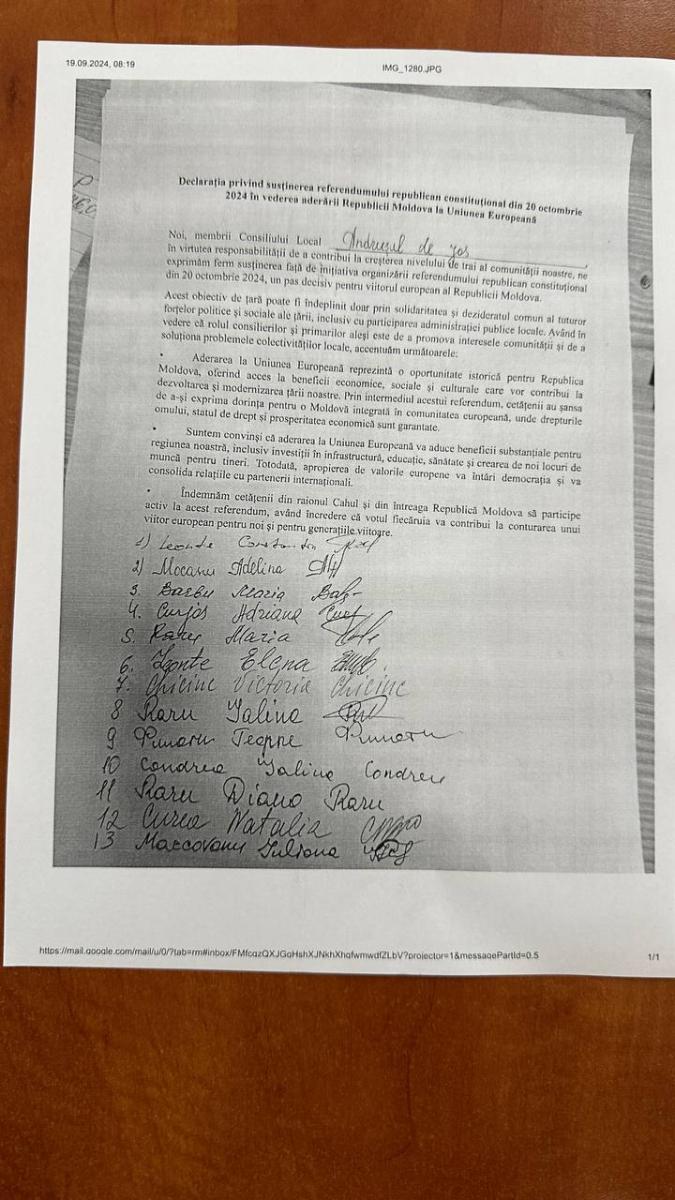 19.09.2024, 08:19
IMG_1280.JPG
Declarația privind susținerea referendumului republican constituțional din 20 octombrie
2024 în vederea aderării Republicii Moldova la Uniunea Europeană
Noi, membrii Consiliului Local Andrușul de Jos,
în virtutea responsabilității de a contribui la creșterea nivelului de trai al comunității noastre, ne
exprimăm ferm susținerea față de inițiativa organizării referendumului republican constituțional
din 20 octombrie 2024, un pas decisiv pentru viitorul european al Republicii Moldova.
Acest obiectiv de țară poate fi îndeplinit doar prin solidaritatea și dezideratul comun al tuturor
forțelor politice și sociale ale țării, inclusiv cu participarea administrației publice locale. Având în
vedere că rolul consilierilor și primarilor aleși este de a promova interesele comunității și de a
soluționa problemele colectivităților locale, accentuăm următoarele:
• Aderarea la Uniunea Europeană reprezintă o oportunitate istorică pentru Republica
Moldova, oferind acces la beneficii economice, sociale și culturale care vor contribui la
dezvoltarea și modernizarea țării noastre. Prin intermediul acestui referendum, cetățenii au șansa
de a-și exprima dorința pentru o Moldovă integrată în comunitatea europeană, unde drepturile
omului, statul de drept și prosperitatea economică sunt garantate.
• Suntem convinși că aderarea la Uniunea Europeană va aduce beneficii substanțiale pentru
regiunea noastră, inclusiv investiții în infrastructură, educație, sănătate și crearea de noi locuri de
muncă pentru tineri. Totodată, apropierea de valorile europene va întări democrația și va
consolida relațiile cu partenerii internaționali.
• Îndemnăm cetățenii din raionul Cahul și din întreaga Republică Moldova să participe
activ la acest referendum, având încredere că votul fiecăruia va contribui la conturarea unui
viitor european pentru noi și pentru generațiile viitoare.
1) Leonte Constantin
2) Mocanu Adelina
3. Barbu Maria
4. Curjos Adriana
5. Raru Maria
6. Leonte Elena
7. Chicinc Victoria Chicinc
8 Raru Galina
9
10 Condrea Galina Condrea
11 Raru Diana Raru
12 Curea Natalia
13 Iuliana
1/1